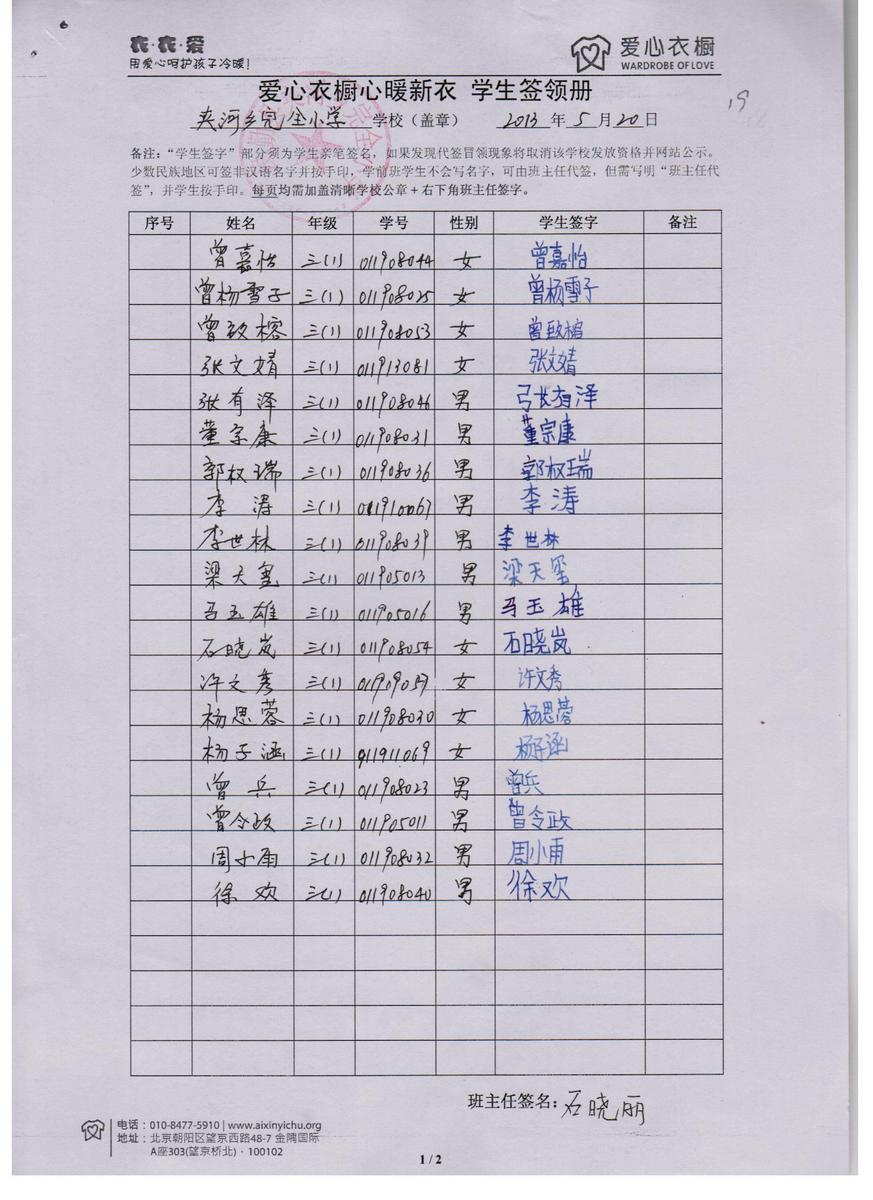 衣·衣·爱
用爱心呵护孩子冷暖！
爱心衣橱
WARDROBE OF LOVE
爱心衣橱心暖新衣 学生签领册
19
夹河乡完全小学 学校（盖章） 2013 年 5 月 20 日
备注：“学生签字”部分须为学生亲笔签名，如果发现代签冒领现象将取消该学校发放资格并网站公示。
少数民族地区可签非汉语名字并按手印，学前班学生不会写名字，可由班主任代签，但需写明“班主任代
签”，并学生按手印。每页均需加盖清晰学校公章＋右下角班主任签字。
序号 姓名 年级 学号 性别 学生签字 备注
曾嘉怡 三(1) 011908044 女 曾嘉怡
曾杨雪子 三(1) 011908025 女 曾杨雪子
曾致榕 三(1) 011908053 女 曾致榕
张文婧 三(1) 011913081 女 张文婧
张有泽 三(1) 011908046 男 张有泽
董宗康 三(1) 011908031 男 董宗康
郭权瑞 三(1) 011908036 男 郭权瑞
李涛 三(1) 011910067 男 李涛
李世林 三(1) 011908039 男 李世林
梁天玺 三(1) 011905013 男 梁天玺
马玉雄 三(1) 011905016 男 马玉雄
石晓岚 三(1) 011908054 女 石晓岚
许文秀 三(1) 女 许文秀
杨思蓉 三(1) 011908030 女 杨思蓉
杨子涵 三(1) 011911069 女 杨子涵
曾兵 三(1) 011908023 男 曾兵
曾令政 三(1) 011905011 男 曾令政
周小雨 三(1) 011908032 男 周小雨
徐欢 三(1) 011908040 男 徐欢
班主任签名：石晓丽
电话：010-8477-5910 | www.aixinyichu.org
地址：北京朝阳区望京西路48-7 金隅国际
A座303(望京桥北)·100102
1 / 2